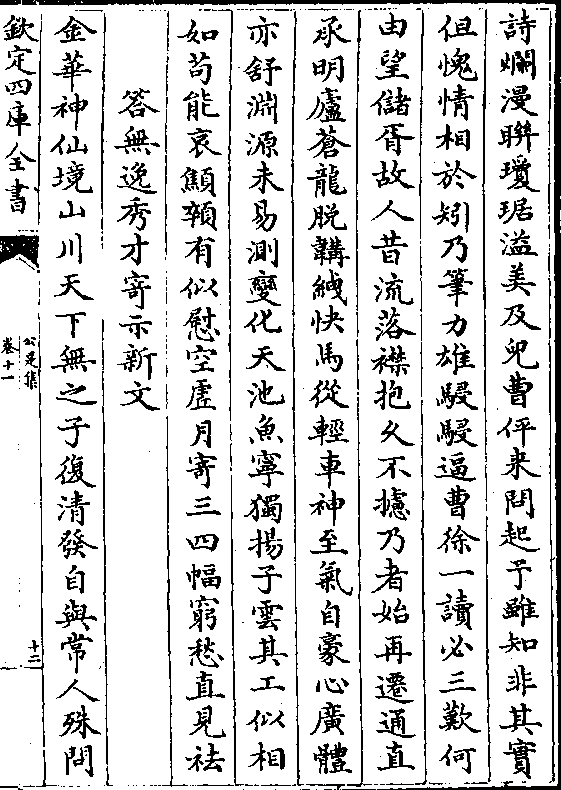 詩爛漫聨瓊琚溢美及兒曹伻来問起予雖知非其實
但愧情相於矧乃筆力雄駸駸逼曹徐一讀必三歎何
由望儲胥故人昔流落襟抱久不攄乃者始再遷通直
承明廬蒼龍脱鞲紲快馬從輕車神至氣自豪心廣體
亦舒淵源未易測變化天池魚寧獨揚子雲其工似相
如茍能哀顦顇有似慰空虗月寄三四幅窮愁直見祛
答無逸秀才寄示新文
金華神仙境山川天下無之子復清發自與常人殊問
欽定四庫全書
公是集
卷十一
十二